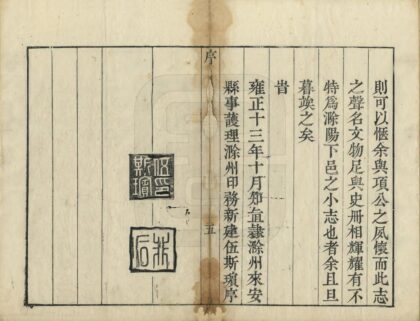 則可以愜余與項公之夙懷而此志
之聲名文物足與史册相輝耀有不
特爲滁陽下邑之小志也者余且旦
暮竢之矣
旹
雍正十三年十月知直隸滁州來安
縣事護理滁州印務新建伍斯璸序
序
五
伍印斯璸